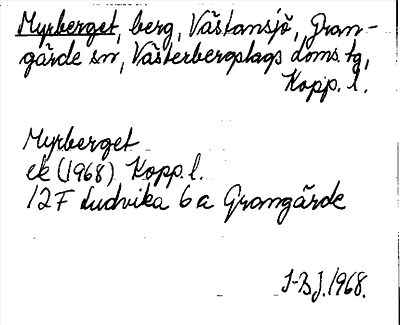 Myrberget, berg, Västansjö, Gran-
gärde sn, Västerbergslags doms tg,
Kopp. l.
Myrberget
ek (1968) Kopp. l.
12F Ludvika 6a Grangärde
I-BJ. 1968.